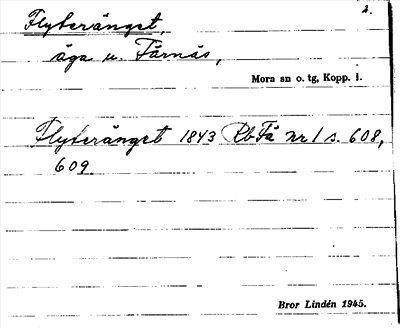 Flyteränget, 2.
äga u. Färnäs,
Mora sn o. tg, Kopp. l.
Flyteränget 1843 Rb Fä nr 1 s. 608,
609.
Bror Lindén 1945.